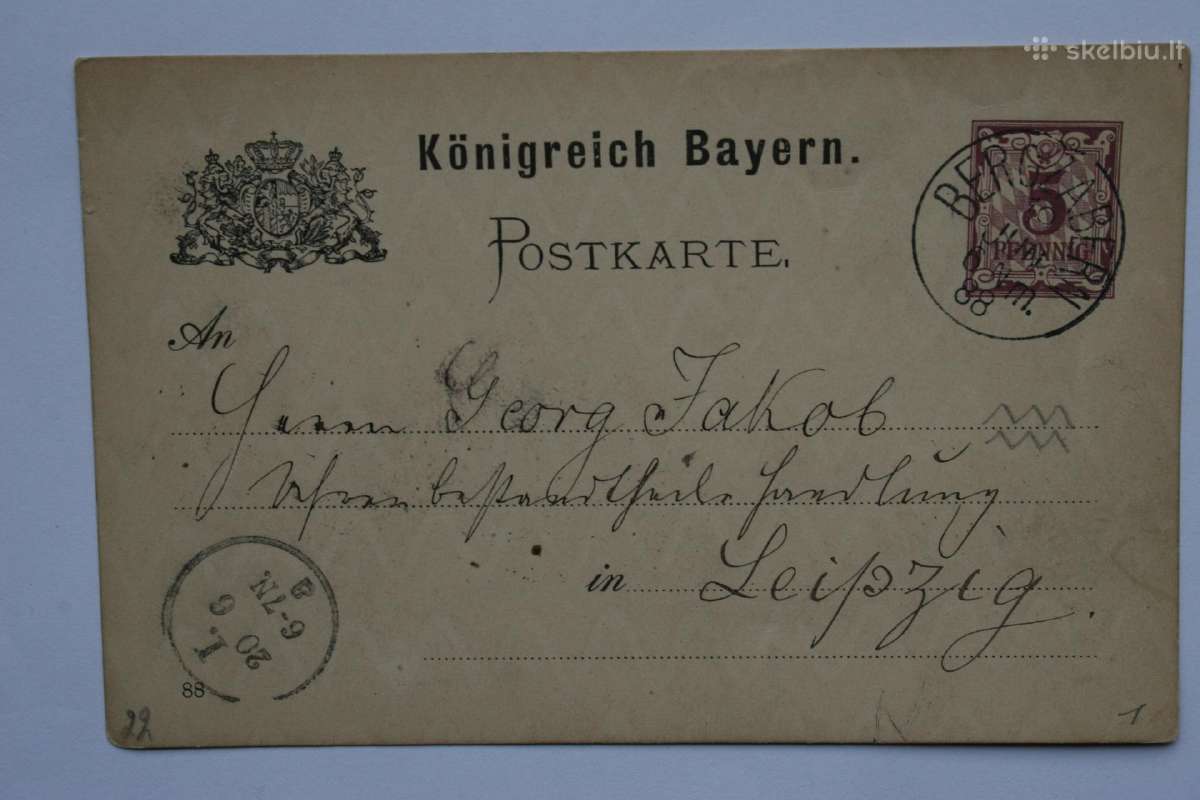 skelbiu.lt
Königreich Bayern.
POSTKARTE.
5
PFENNIG
BERGZABERN
88
An
Herrn Georg Jakob
Uhrenbestandtheile Handlung
in Leipzig.
20
6-7N.
88
22
1